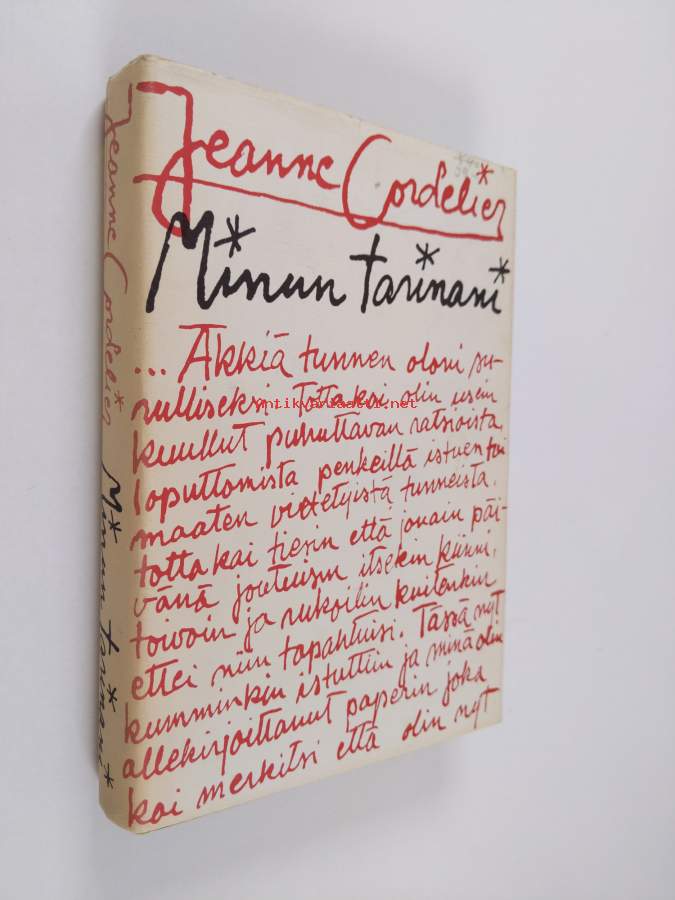 Jeanne Cordelier
Minun tarinani
... Äkkiä tunnen oloni su-
rulliseksi. Tottakai olin usein
kuullut puhuttavan ratsioista,
loputtomista penkeillä istuen tai
maaten vietetyistä tunneista.
tottakai tiesin että jonain päi-
vänä joutuisin itsekin kiinni,
toivoin ja rukoilin kuitenkin
ettei niin tapahtuisi. Tässä nyt
kumminkin istuttiin ja minä olin
allekirjoittanut paperin joka
kai merkitsi että olin nyt
Jeanne Cordelier
Minun tarinani
Antikvariaatti.net